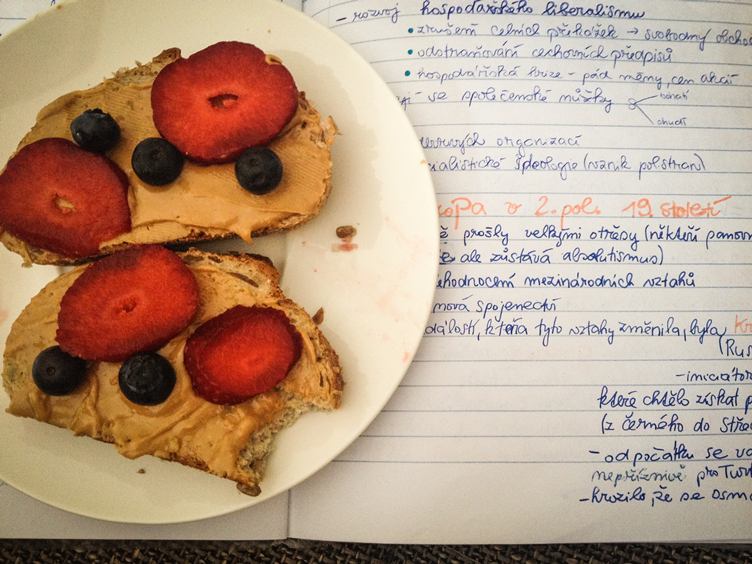 - rozvoj hospodářského liberalismu
• zrušení celních překážek → svobodný obcho
• odstraňování cechovních předpisů
• hospodářská krize - pád měny, cen akcií
se společenské nůžky
bohatí
chudí
organizací
ialistické ideologie (vznik pol. stran)
oPa v 2. pol. 19. století
ě prošly velkými otřesy (někteří panov
ě ale zůstává absolutismus)
ehodnocení mezinárodních vztahů
mová spojenectví
dálostí, která tyto vztahy změnila, byla Kr
(Rus
- iniciátor
které chtělo získat p
(z Černého do Stře
- od počátku se vá
nepříznivě pro Tur
- hrozilo, že se Osma